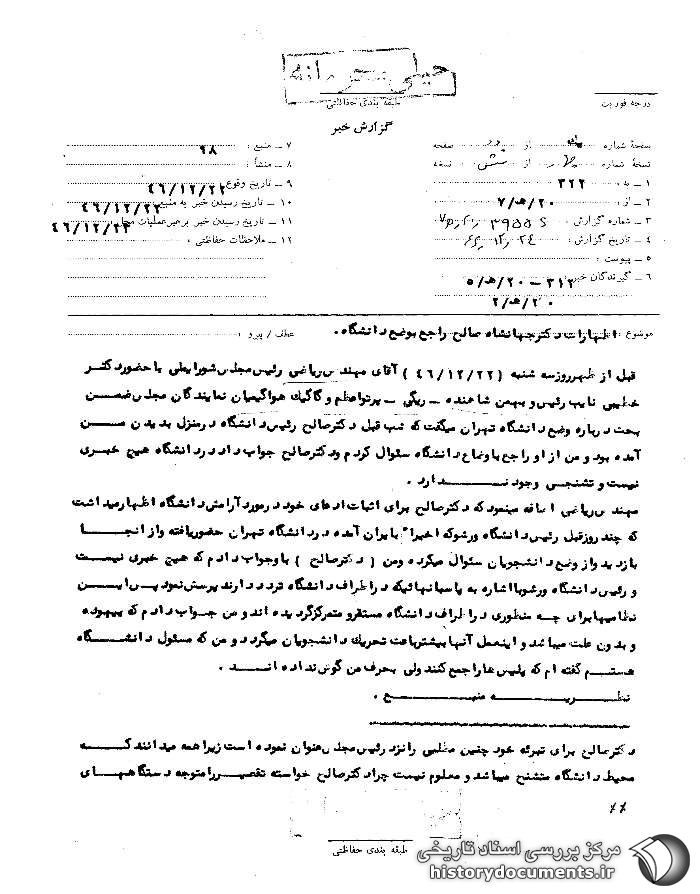 خیلی محرمانه
طبقه بندی حفاظتی
درجه فوریت
گزارش خبر
نسخهٔ شماره از صفحه
نسخهٔ شماره از شش نسخه
۱ ــ به : ۳۲۲
۲ ــ از : ۲۰/هـ/۷
۳ ــ شماره گزارش :
۴ ــ تاریخ گزارش :
۵ ــ پیوست :
۶ ــ گیرندگان خبر : ۳۱۲ ــ ۲۰/هـ/۵
۲۰/هـ/۲
۷ ــ منبع : ۹۸
۸ ــ منشأ :
۹ ــ تاریخ وقوع ۴۶/۱۲/۲۲
۱۰ ــ تاریخ رسیدن خبر به منبع ۴۶/۱۲/۲۲
۱۱ ــ تاریخ رسیدن خبر برهبر عملیات محل ۴۶/۱۲/۲۳
۱۲ ــ ملاحظات حفاظتی :
موضوع : اظهارات دکترجهانشاه صالح راجع بوضع دانشگاه .
عطف / پیرو :
قبل از ظهرروزسه شنبه (۴۶/۱۲/۲۲) آقای مهندس ریاضی رئیس مجلس شورایملی با حضوردکتر
خطیبی نایب رئیس و بهمن شاهنده ــ ریگی ــ پرتواعظم و گاگیک هواگیمیان نمایندگان مجلس ضمن
بحث درباره وضع دانشگاه تهران میگفت که شب قبل دکترصالح رئیس دانشگاه درمنزل بدیدن من
آمده بود و من از او راجع باوضاع دانشگاه سئوال کردم ودکترصالح جواب داد دردانشگاه هیچ خبری
نیست و تشنجی وجود ندارد .
مهندس ریاضی اضافه مینمود که دکترصالح برای اثبات ادعای خود درمورد آرامش دانشگاه اظهارمیداشت
که چند روزقبل رئیس دانشگاه ورشوکه اخیراً بایران آمده دردانشگاه تهران حضوریافته واز آنجا
بازدید واز وضع دانشجویان سئوال میکرده ومن (دکترصالح) باوجواب دادم که هیچ خبری نیست
و رئیس دانشگاه ورشوبا اشاره به پاسبانهائیکه دراطراف دانشگاه تردد دارند پرسش نمود پس این
نظامیها برای چه منظوری دراطراف دانشگاه مستقرو متمرکزگردیده اند و من جواب دادم که بیهوده
و بدون علت میباشد و اینعمل آنها بیشترباعث تحریک دانشجویان میگردد و من که مسئول دانشگاه
هستم گفته ام که پلیس هاراجمع کنند ولی بحرف من گوش نداده اند .
نظریه منبع .
دکترصالح برای تبرئه خود چنین مطلبی رانزد رئیس مجلس عنوان نموده است زیرا همه میدانند که
محیط دانشگاه متشنج میباشد و معلوم نیست چرا دکترصالح خواسته تقصیر را متوجه دستگاههای
طبقه بندی حفاظتی
مرکز بررسی اسناد تاریخی
historydocuments.ir